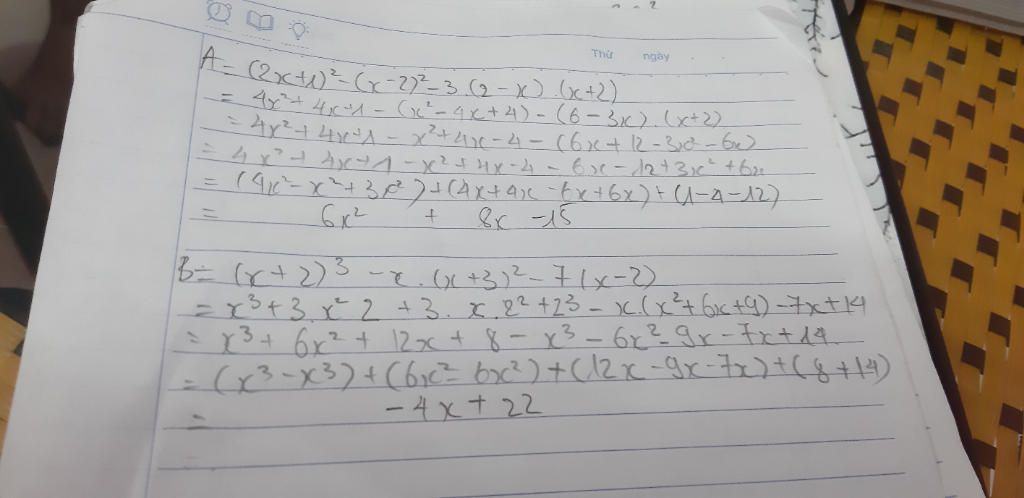 Thứ ngày
A = (2x+1)² - (x-2)² - 3.(2-x).(x+2)
= 4x² + 4x+1 - (x² - 4x + 4) - (6 - 3x).(x+2)
= 4x² + 4x+1 - x² + 4x - 4 - (6x + 12 - 3x² - 6x)
= 4x² + 4x+1 - x² + 4x - 4 - 6x - 12 + 3x² + 6x
= (4x² - x² + 3x²) + (4x + 4x - 6x + 6x) + (1-4-12)
= 6x² + 8x - 15
B = (x+2)³ - x.(x+3)² - 7(x-2)
= x³ + 3.x² 2 + 3.x.2² + 2³ - x.(x² + 6x + 9) - 7x + 14
= x³ + 6x² + 12x + 8 - x³ - 6x² - 9x - 7x + 14
= (x³ - x³) + (6x² - 6x²) + (12x - 9x - 7x) + (8 + 14)
= -4x + 22